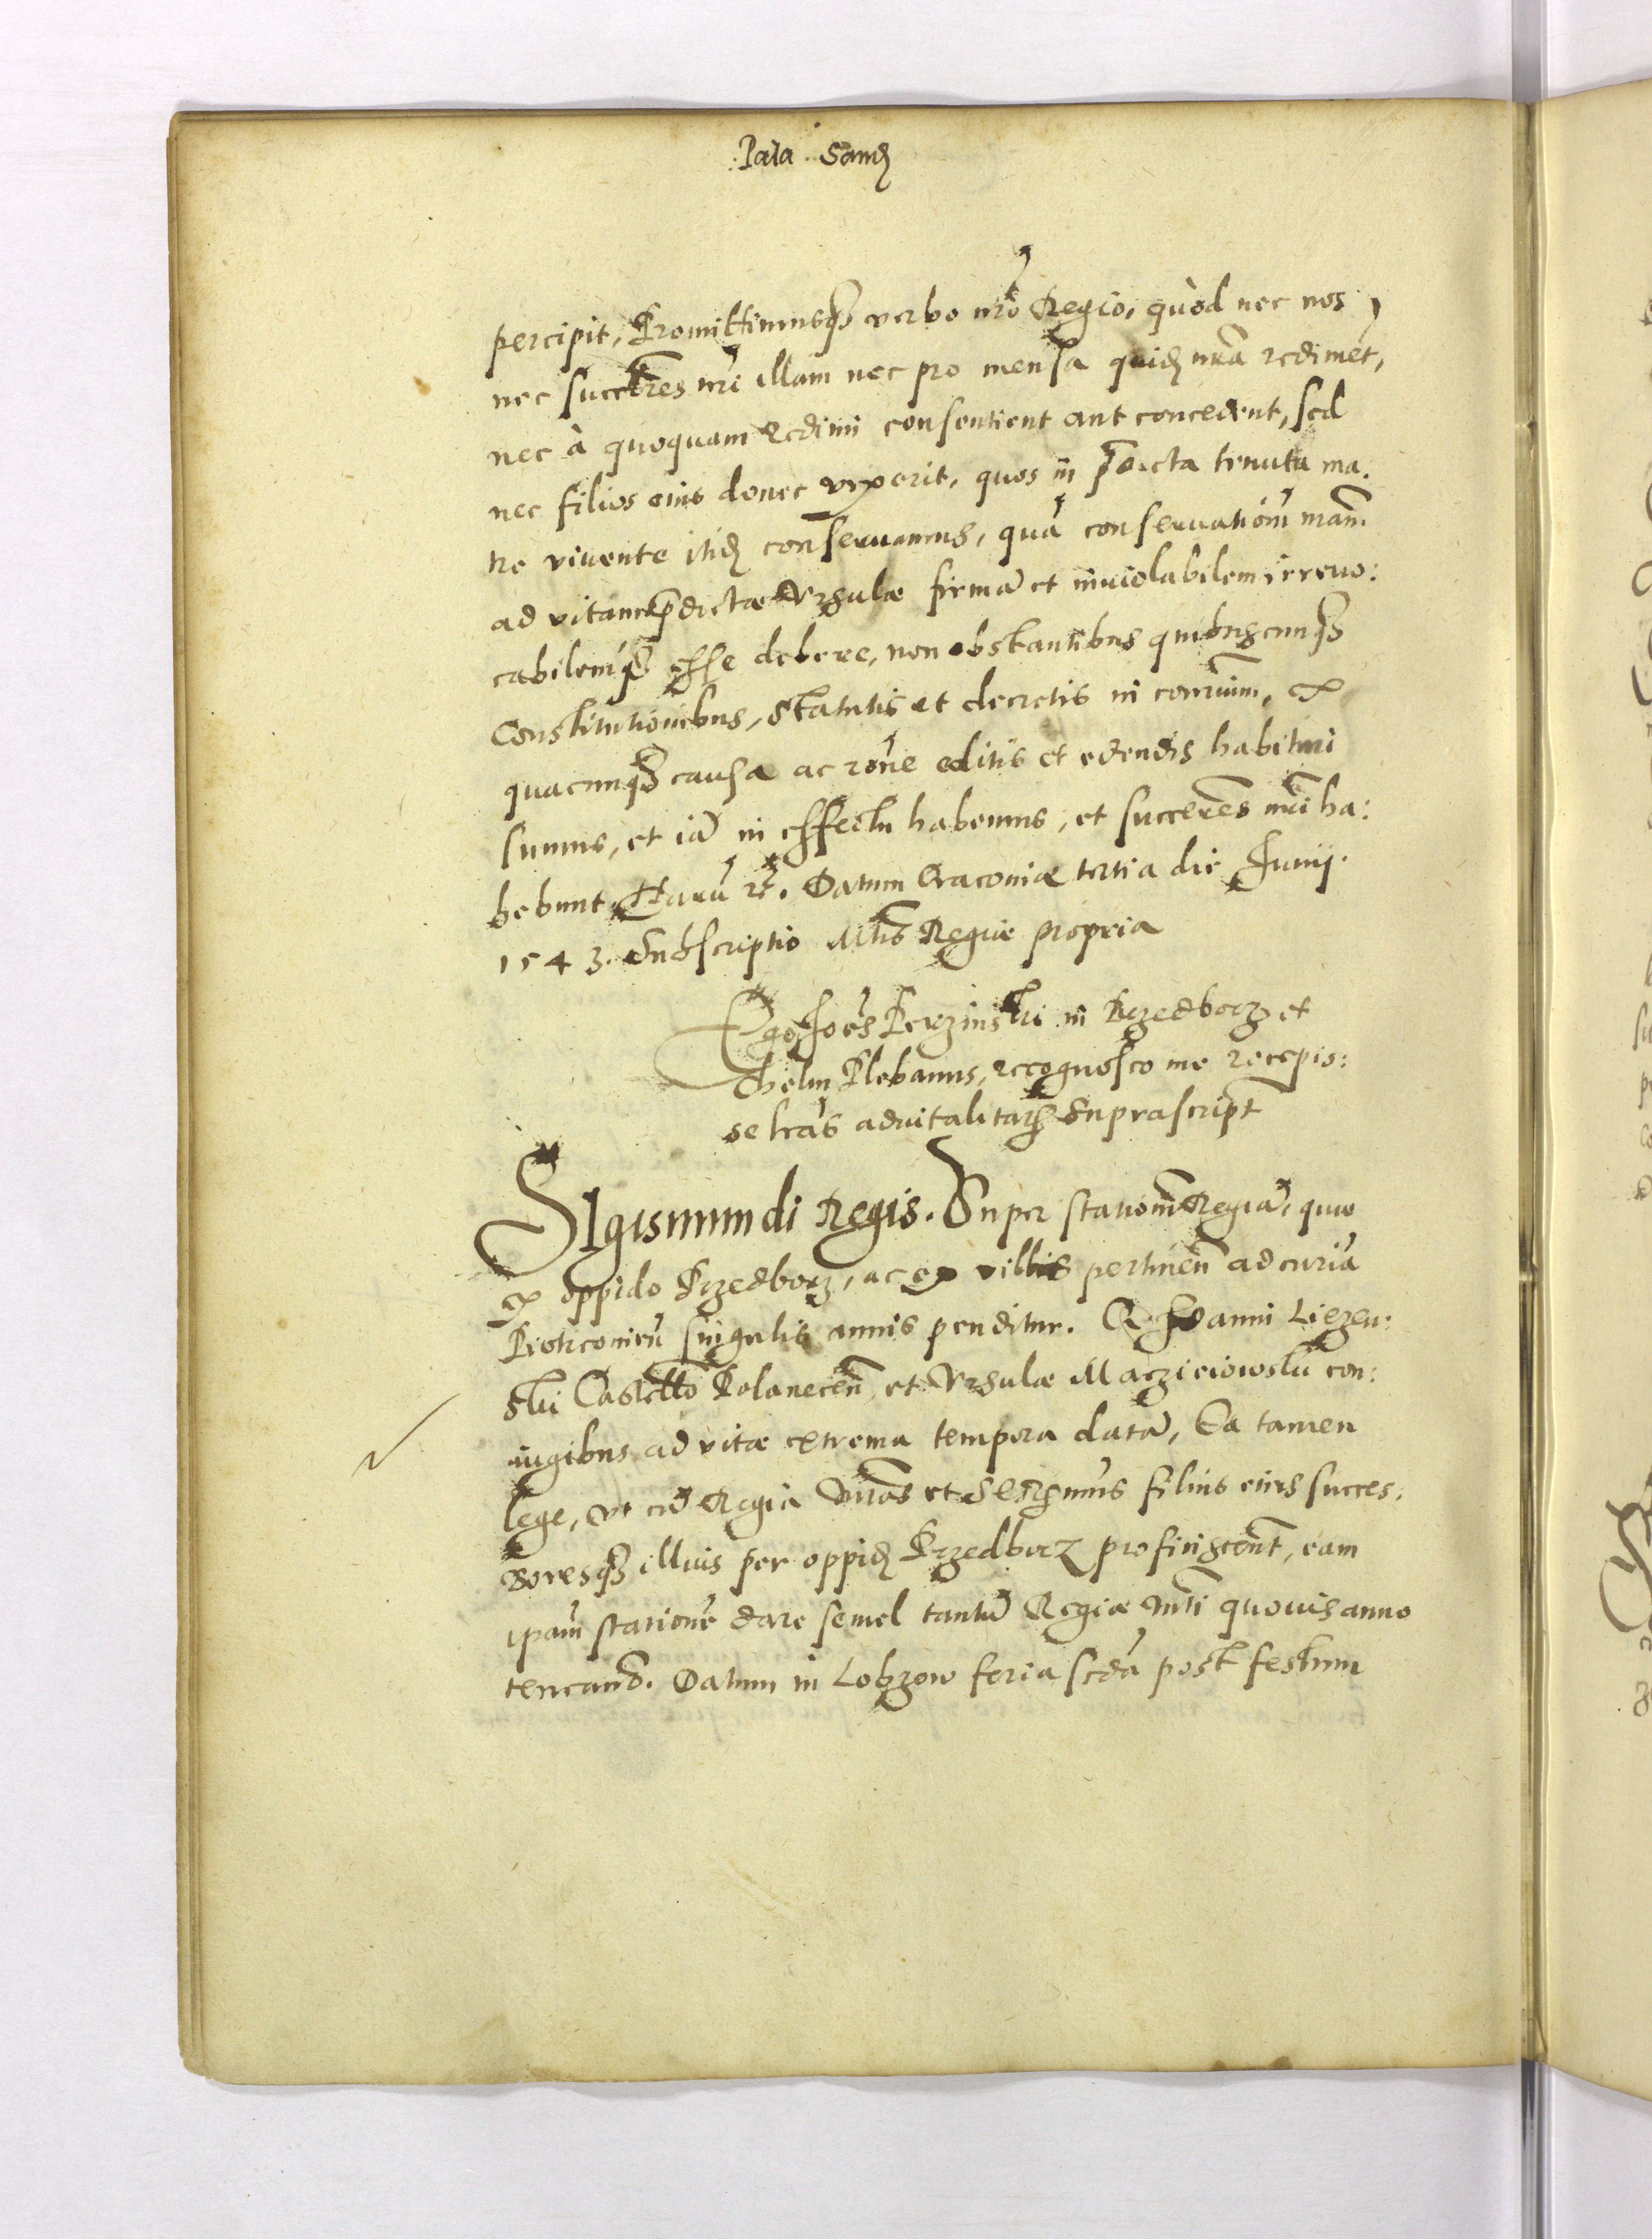 Pala. Sand
percipit, Promittimusq3 verbo nro Regio, quòd nec nos,
nec succres nri illam nec pro mensa quid nra redimet,
nec à quoquam redimi consentient aut concedent, sed
nec filios eius donec vixerit, quos in pdicta tenuta ma.
tre vivente itid conseruamus, quã conseruationẽ nram
ad vitam pdictæ Vrsulæ firmã et inuiolabilem irreuo:
cabilemq3 esse debere, non obstantibus quibuscunq3
Constitutionibus, Statutis et decretis in contrium, ex
quacunq3 causa ac rone editis et edendis habituri
sumus, et iã in effectu habemus, et succeres nri ha:
bebunt. Harũ rc. Datum Cracouiæ tertia die Junij.
1543. Subscriptio Mtis Regiæ propria
Ego Joes Perzinski in Przedborz et
Chelm Plebanus, recognosco me recepis:
se lras aduitalitatis suprascript
Sigismundi Regis. Super stationẽ Regiã, quæ
ex oppido Przedborz, ac ex villis pertinen ad curiã
Piotrcouien singulis annis penditur. G. Joanni Liezen:
ski Castello Polanecen, et Vrsulæ Maczieiowski con:
iugibus ad vitæ extrema tempora datã, Ea tamen
lege, vt cũ Regia Mtas et Sermus filius eius succes:
soresq3 illius per oppid Przedborz proficiscent, eam
ipam stationẽ dare semel tantũ Regiæ Mti quouis anno
teneant. Datum in Lobzow feria scda post festum